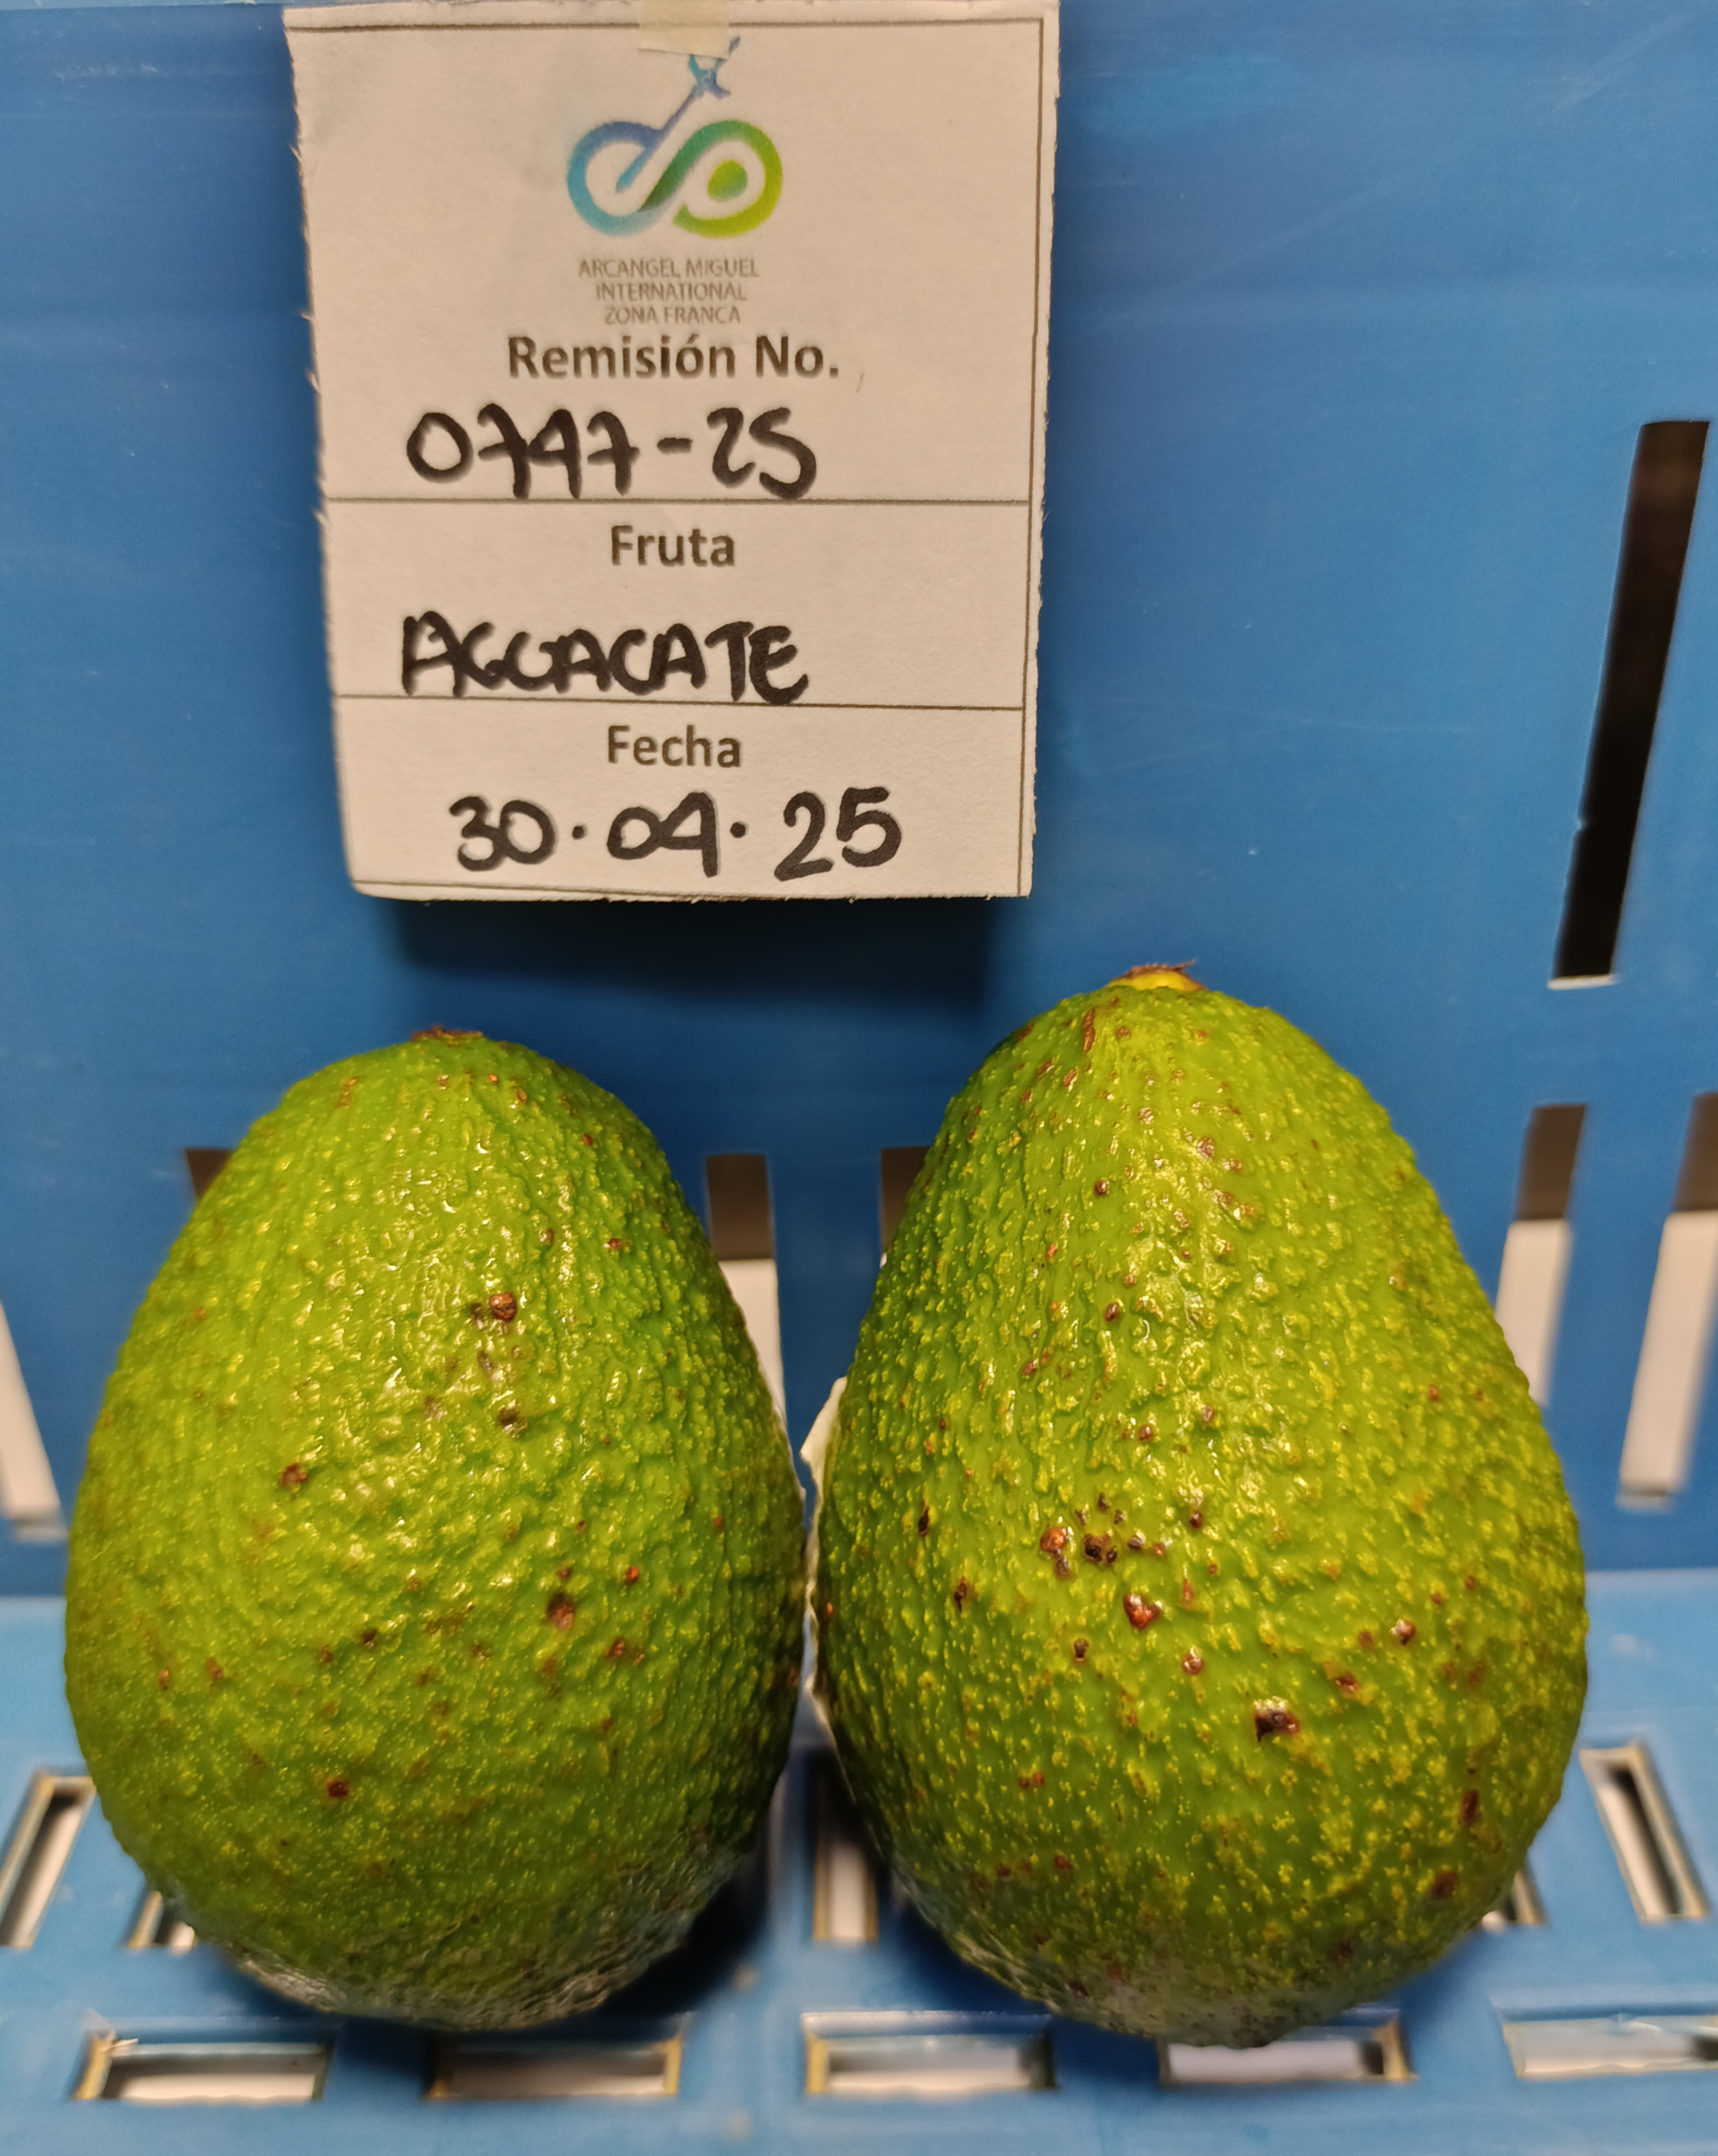 ARCANGEL MIGUEL
INTERNATIONAL
ZONA FRANCA
Remisión No.
0747-25
Fruta
AGUACATE
Fecha
30.04.25